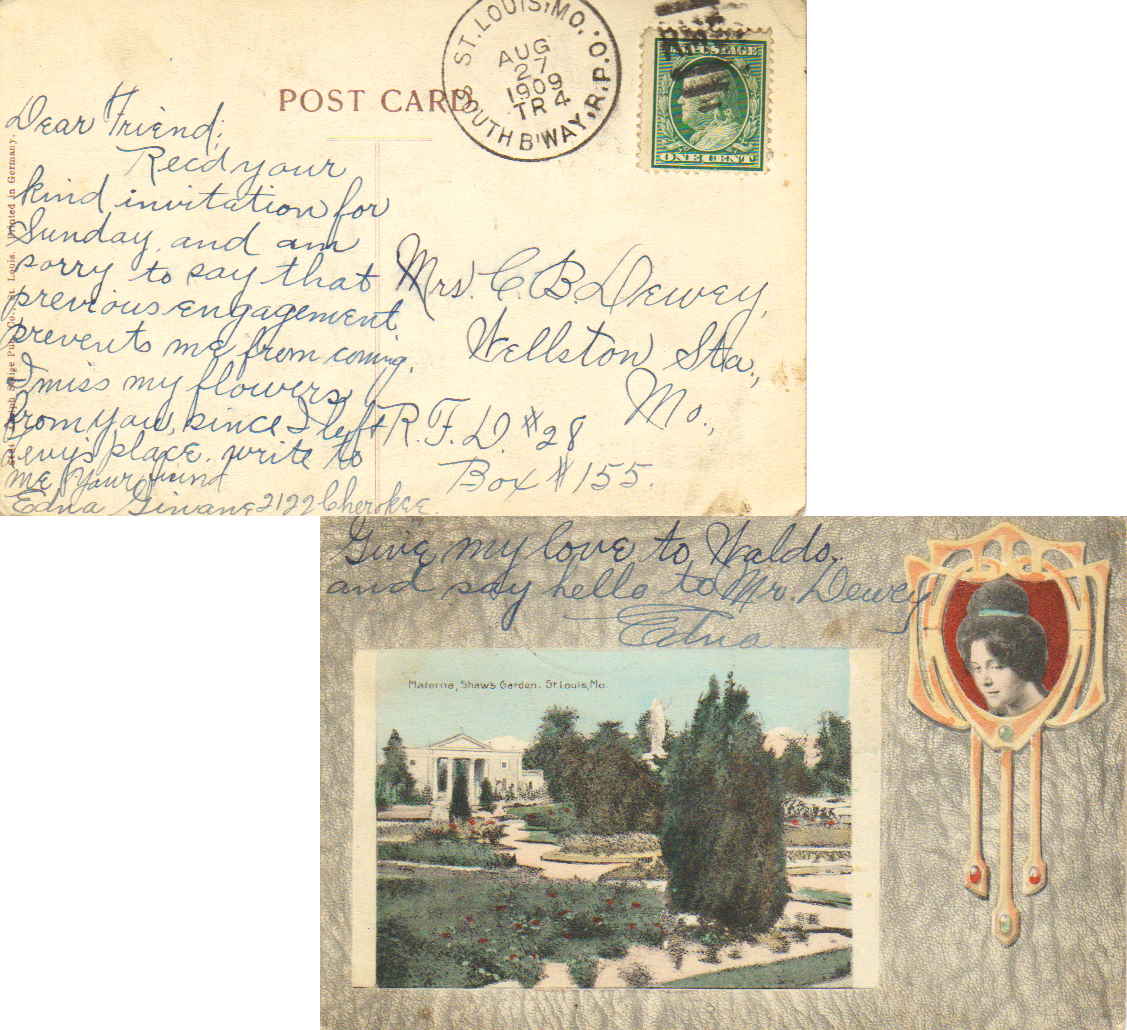 POST CARD
ST. LOUIS, MO. SOUTH B'WAY, R.P.O.
AUG
27
1909
TR 4
U.S. POSTAGE
ONE CENT
Dear Friend;
Recd your
kind invitation for
Sunday, and am
sorry to say that
previous engagement
prevents me from coming.
I miss my flowers
from you, since I left
place. write to
me Your friend
Edna 2122 Cherokee.
St. Louis. Printed in Germany.
Mrs. C. B. Dewey,
Wellston Sta.,
Mo.,
R. F. D. #28
Box #155.
Give my love to Waldo,
and say hello to Mr. Dewey
Edna
Materna, Shaw's Garden. St. Louis, Mo.